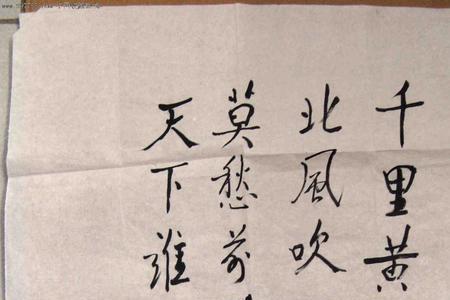 千里黄
北風吹
莫愁前
天下誰